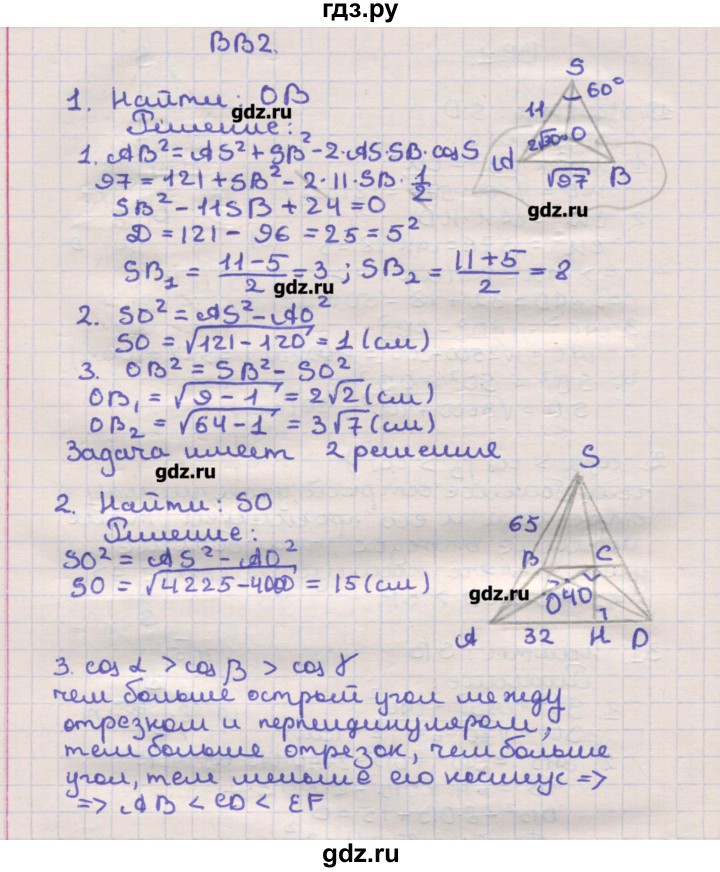 гдз.ру
ВВ2.
1. Найти: OB
Решение:
1. AB² = AS² + SB² - 2·AS·SB·cosS
97 = 121 + SB² - 2·11·SB·1/2
SB² - 11SB + 24 = 0
D = 121 - 96 = 25 = 5²
SB₁ = (11-5)/2 = 3 ; SB₂ = (11+5)/2 = 8
2. SO² = AS² - AO²
SO = √(121-120) = 1 (см)
3. OB² = SB² - SO²
OB₁ = √(9-1) = 2√2 (см)
OB₂ = √(64-1) = 3√7 (см)
Задача имеет 2 решения
S
60°
11
2√30
O
A
√97
B
2. Найти: SO
Решение:
SO² = AS² - AO²
SO = √(4225-4000) = 15 (см)
S
65
B
C
O
40
A
32
H
D
3. cosα > cosβ > cosγ
чем больше острый угол между
отрезком и перпендикуляром,
тем больше отрезок, чем больше
угол, тем меньше его косинус =>
=> AB < CD < EF
gdz.ru
gdz.ru
gdz.ru
gdz.ru
gdz.ru
gdz.ru
gdz.ru
gdz.ru